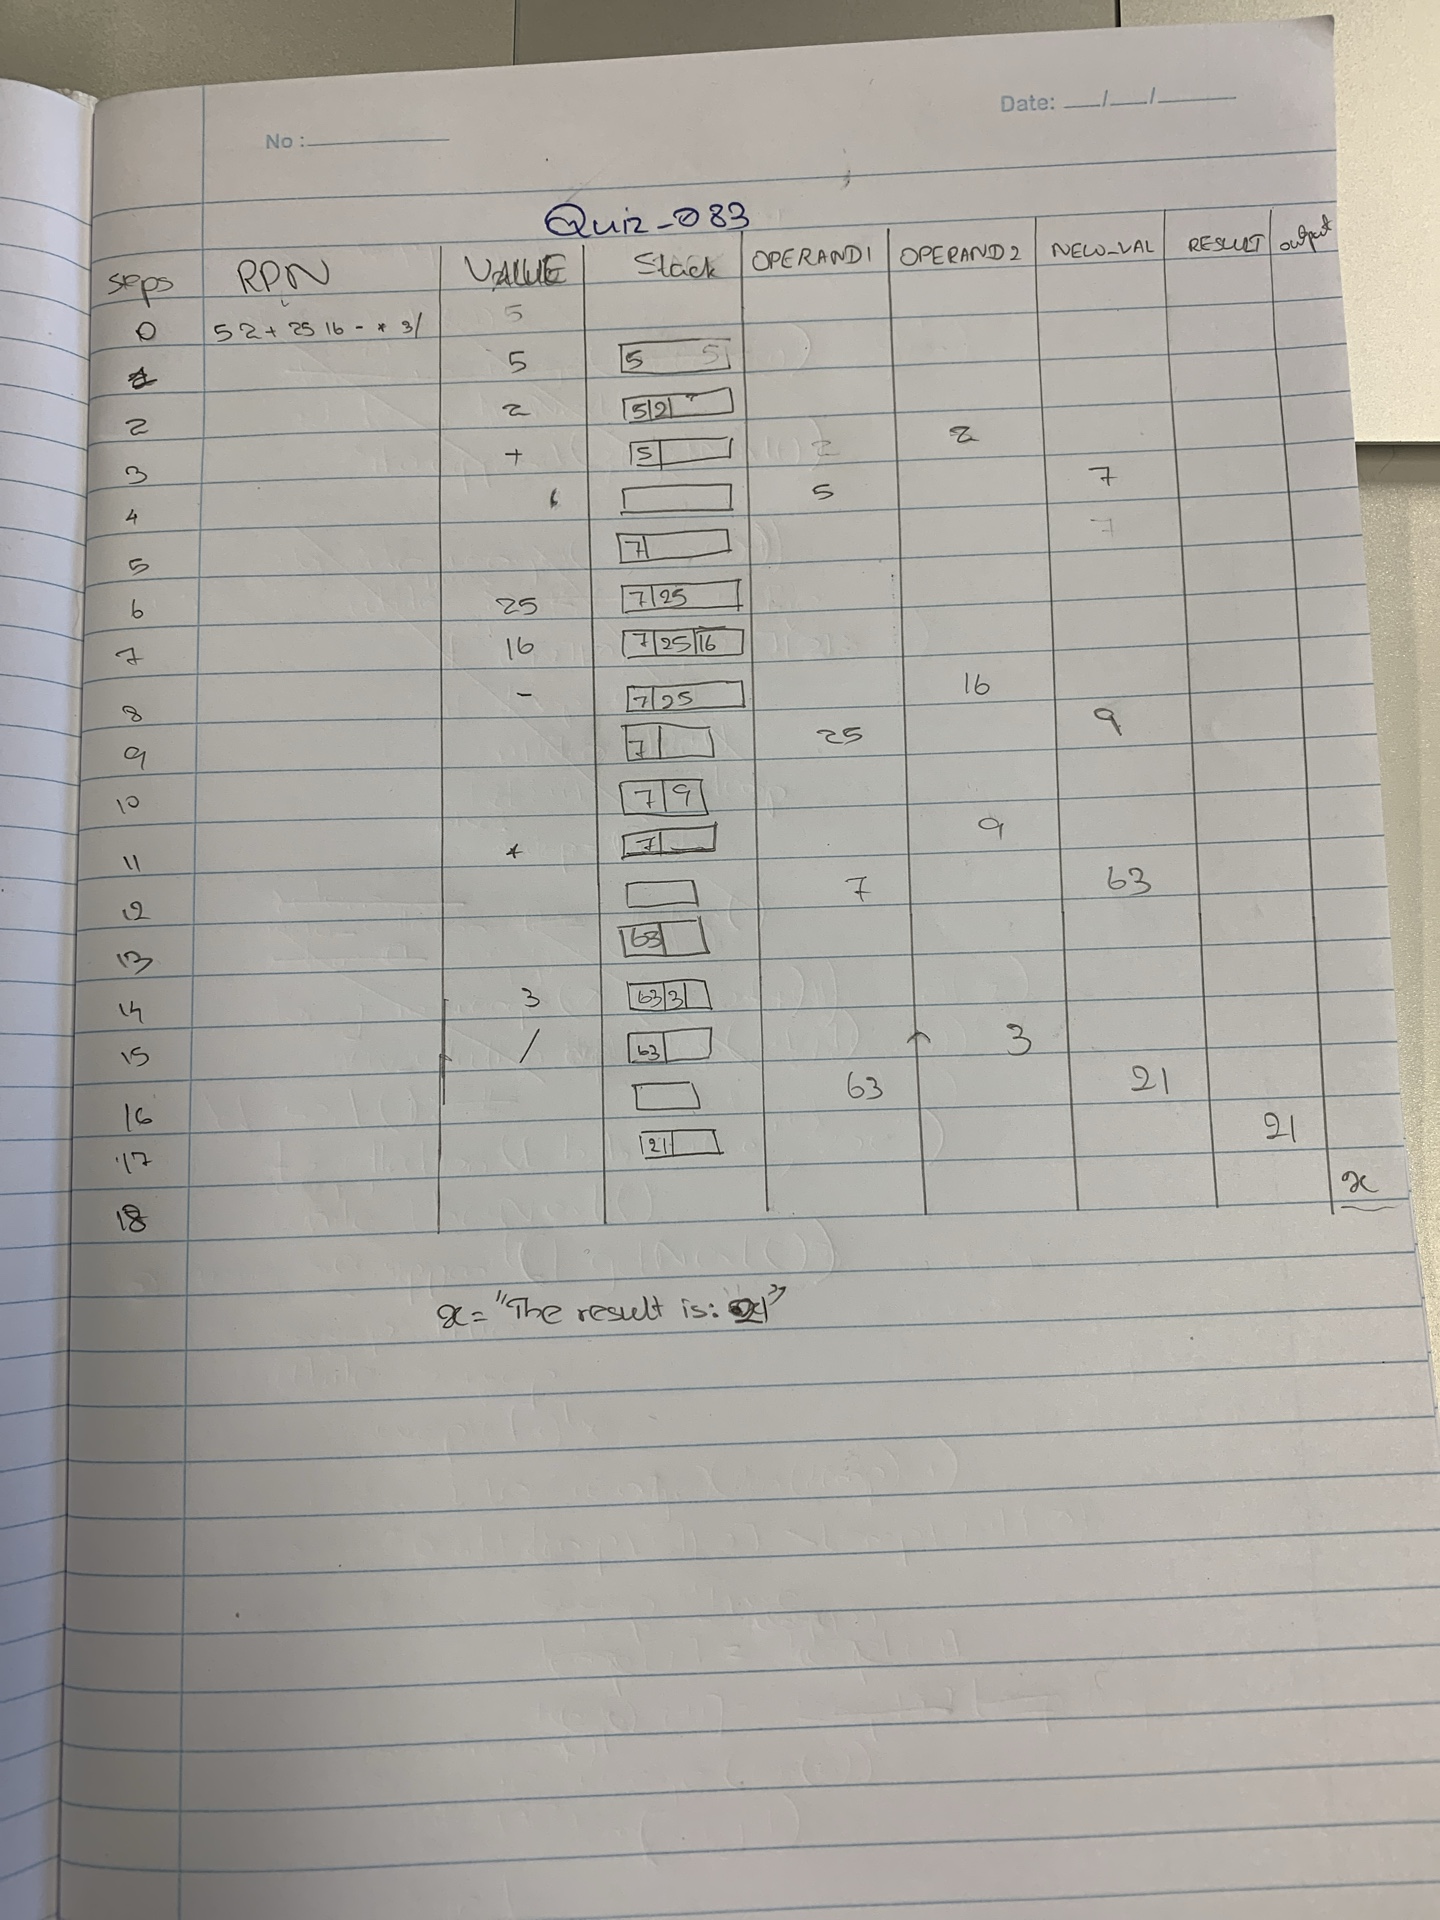 No :
Date: __/__/____
Quiz-083
seps RPN VALUE Stack OPERAND1 OPERAND2 NEW_VAL RESULT output
0 5 2 + 25 16 - * 3/ 5
1 5 5 5
2 2 5|2|
3 + 5| 2 2
4 5 7
5 7| 7
6 25 7|25
7 16 7|25|16
8 - 7|25 16
9 7| 25 9
10 7|9
11 * 7| 9
12 7 63
13 63|
14 3 63|3|
15 / 63| 3
16 63 21
17 21| 21
18 x
x = "The result is: 21"